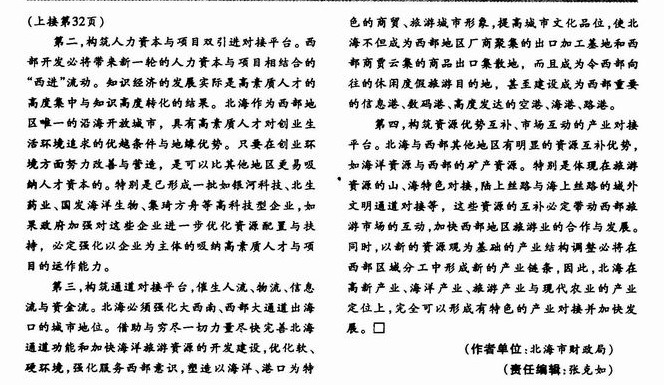 (上接第32页)
第二,构筑人力资本与项目双引进对接平台。西
部开发必将带来新一轮的人力资本与项目相结合的
“西进”流动。知识经济的发展实际是高素质人才的
高度集中与知识高度转化的结果。北海作为西部地
区唯一的沿海开放城市，具有高素质人才对创业生
活环境追求的优越条件与地缘优势。只要在创业环
境方面努力改善与营造，是可以比其他地区更易吸
纳人才资本的。特别是已形成一批如银河科技、北生
药业、国发海洋生物、集琦方舟等高科技型企业,如
果政府加强对这些企业进一步优化资源配置与扶
持，必定强化以企业为主体的吸纳高素质人才与项
目的运作能力。
第三,构筑通道对接平台,催生人流、物流、信息
流与资金流。北海必须强化大西南、西部大通道出海
口的城市地位。借助与穷尽一切力量尽快完善北海
通道功能和加快海洋旅游资源的开发建设,优化软、
硬环境,强化服务西部意识,塑造以海洋、港口为特
色的商贸、旅游城市形象,提高城市文化品位,使北
海不但成为西部地区厂商聚集的出口加工基地和西
部商贾云集的商品出口集散地，而且成为令西部向
往的休闲度假旅游目的地，甚至建设成为西部重要
的信息港、数码港、高度发达的空港、海港、路港。
第四,构筑资源优势互补、市场互动的产业对接
平台。北海与西部其他地区有明显的资源互补优势,
如海洋资源与西部的矿产资源。特别是体现在旅游
资源的山、海特色对接,陆上丝路与海上丝路的域外
文明通道对接等，这些资源的互补必定带动西部旅
游市场的互动,加快西部地区旅游业的合作与发展。
同时,以新的资源观为基础的产业结构调整必将在
西部区域分工中形成新的产业链条,因此,北海在
高新产业、海洋产业、旅游产业与现代农业的产业
定位上,完全可以形成有特色的产业对接并加快发
展。□
(作者单位:北海市财政局)
(责任编辑:张克如)